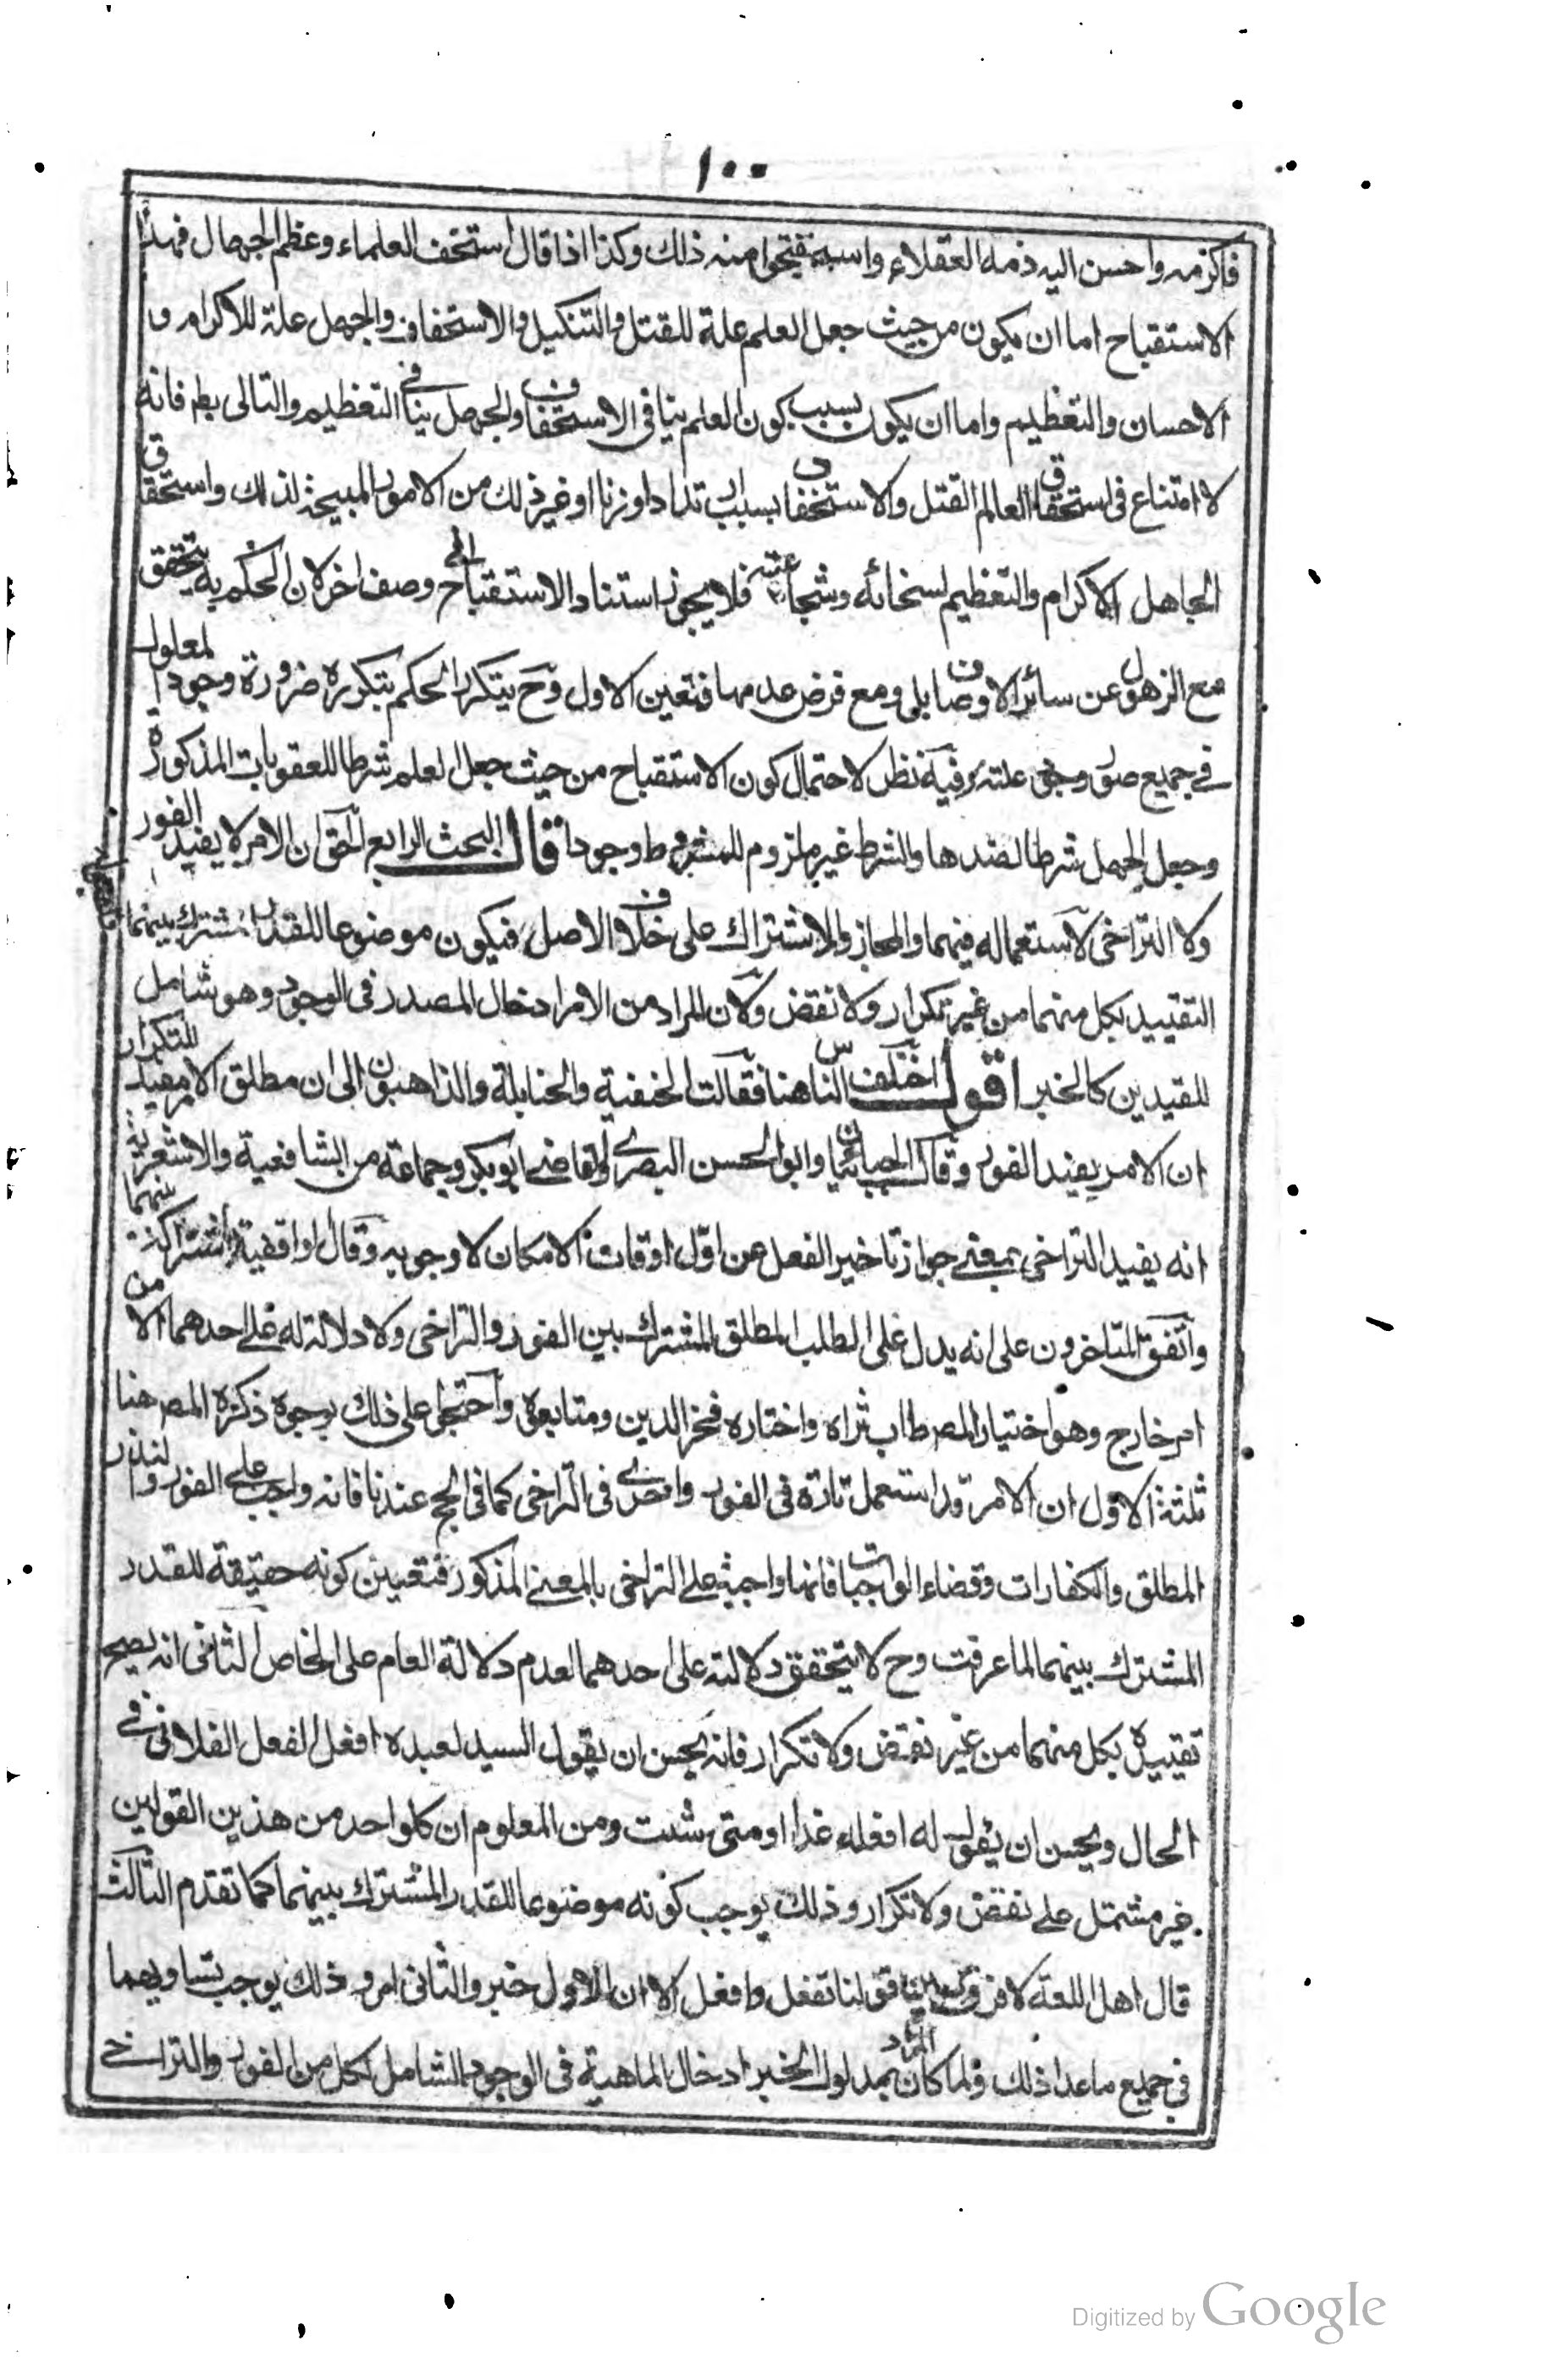 ١٠٠
فاكرمه واحسن اليه ذمه العقلاء واستقبحوا منه ذلك وكذا اذا قال استخف العلماء وعظم الجهال فهذا
الاستقباح اما ان يكون من حيث جعل العلم علة للقتل والتنكيل والاستخفاف والجهل علة للاكرام و
الاحسان والتعظيم واما ان يكون بسبب كون العلم ينافى الاستخفاف والجهل ينافى التعظيم والتالى بط فانه
لا امتناع فى استحقاق العالم القتل والاستخفاف بسبب ارتداد او زنا او غير ذلك من الامور المبيحة لذلك واستحقاق
الجاهل الاكرام والتعظيم لسخائه وشجاعته فلا يجوز استناد الاستقباح الى وصف اخر لان الحكم به يتحقق
مع الذهول عن سائر الاوصاف بل ومع فرض عدمها فتعين الاول وح يتكرر الحكم بتكرره ضرورة وجود المعلول
فى جميع صور وجود علته وفيه نظر لاحتمال كون الاستقباح من حيث جعل العلم شرطا للعقوبات المذكورة
وجعل الجهل شرطا لضدها والشرط غير ملزوم للمشروط وجودا قال البحث الرابع الحق ان الامر لا يفيد الفور
ولا التراخى لاستعماله فيهما والمجاز والاشتراك على خلاف الاصل فيكون موضوعا للقدر المشترك بينهما
التقييد بكل منهما من غير تكرار ولا نقض ولان المراد من الامر ادخال المصدر فى الوجود وهو شامل
للقيدين كالخبر اقول اختلف الناس هنا فقالت الحنفية والحنابلة والذاهبون الى ان مطلق الامر مفيد للتكرار
ان الامر يفيد الفور وقال الجبائيان وابو الحسن البصرى والقاضى ابو بكر وجماعة من الشافعية والاشعرية
انه يفيد التراخى بمعنى جواز تاخير الفعل عن اول اوقات الامكان لا وجوبه وقال الواقفية باشتراكه بينهما
واتفق المتاخرون على انه يدل على الطلب المطلق المشترك بين الفور والتراخى ولا دلالة له على احدهما الا من
امر خارج وهو اختيار المصر طاب ثراه واختاره فخر الدين ومتابعوه واحتجوا على ذلك بوجوه ذكره المصر هنا
ثلثة الاول ان الامر قد استعمل تارة فى الفور واخرى فى التراخى كما فى الحج عندنا فانه واجب على الفور والنذر
المطلق والكفارات وقضاء الواجبات فانها واجبة على التراخى بالمعنى المذكور فتعين كونه حقيقة للقدر
المشترك بينهما لما عرفت وح لا يتحقق دلالته على احدهما لعدم دلالة العام على الخاص الثانى انه يصح
تقييده بكل منهما من غير نقض ولا تكرار فانه يحسن ان يقول السيد لعبده افعل الفعل الفلانى فى
الحال ويحسن ان يقول له افعله غدا او متى شئت ومن المعلوم ان كلواحد من هذين القولين
غير مشتمل على نقض ولا تكرار وذلك يوجب كونه موضوعا للقدر المشترك بينهما كما تقدم الثالث
قال اهل اللغة لا فرق بين قولنا تفعل وافعل الا ان الاول خبر والثانى امر وذلك يوجب تساويهما
فى جميع ماعدا ذلك ولما كان مدلول الخبر ادخال الماهية فى الوجود الشامل لكل من الفور والتراخى
Digitized by Google